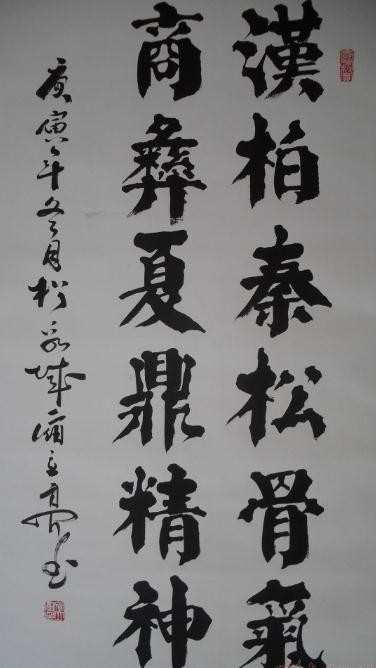 漢柏秦松骨氣
商彝夏鼎精神
庚寅年冬月松